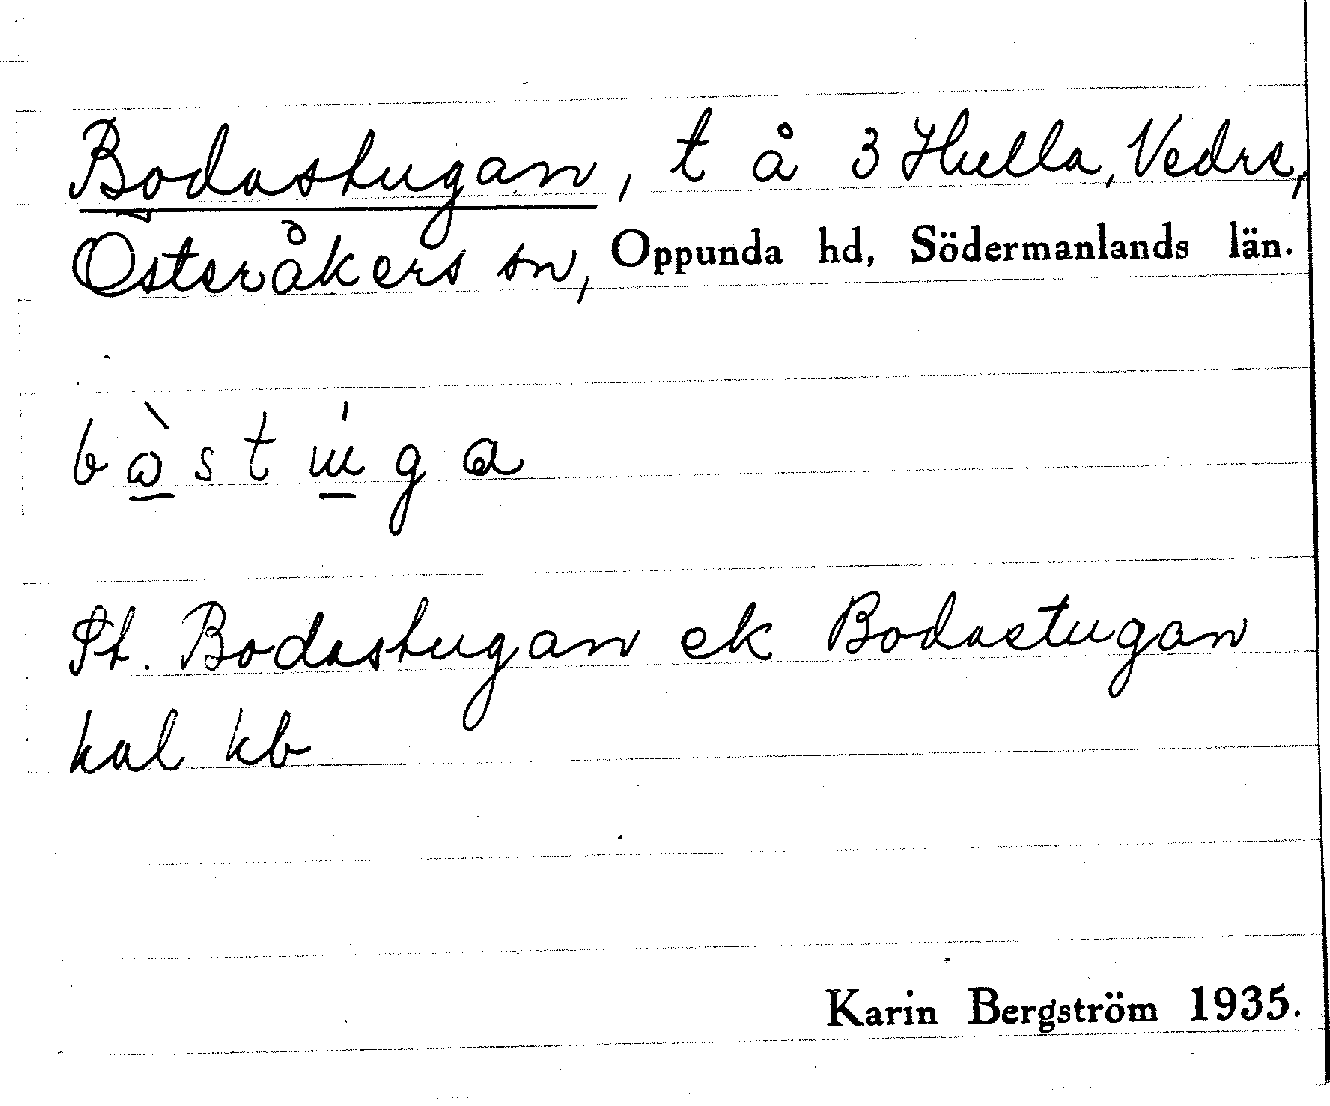 Bodastugan, t å 3 Hulla, Vedre,
Österåkers sn, Oppunda hd, Södermanlands län.
Pt. Bodastugan ek Bodastugan
kal kb
Karin Bergström 1935.